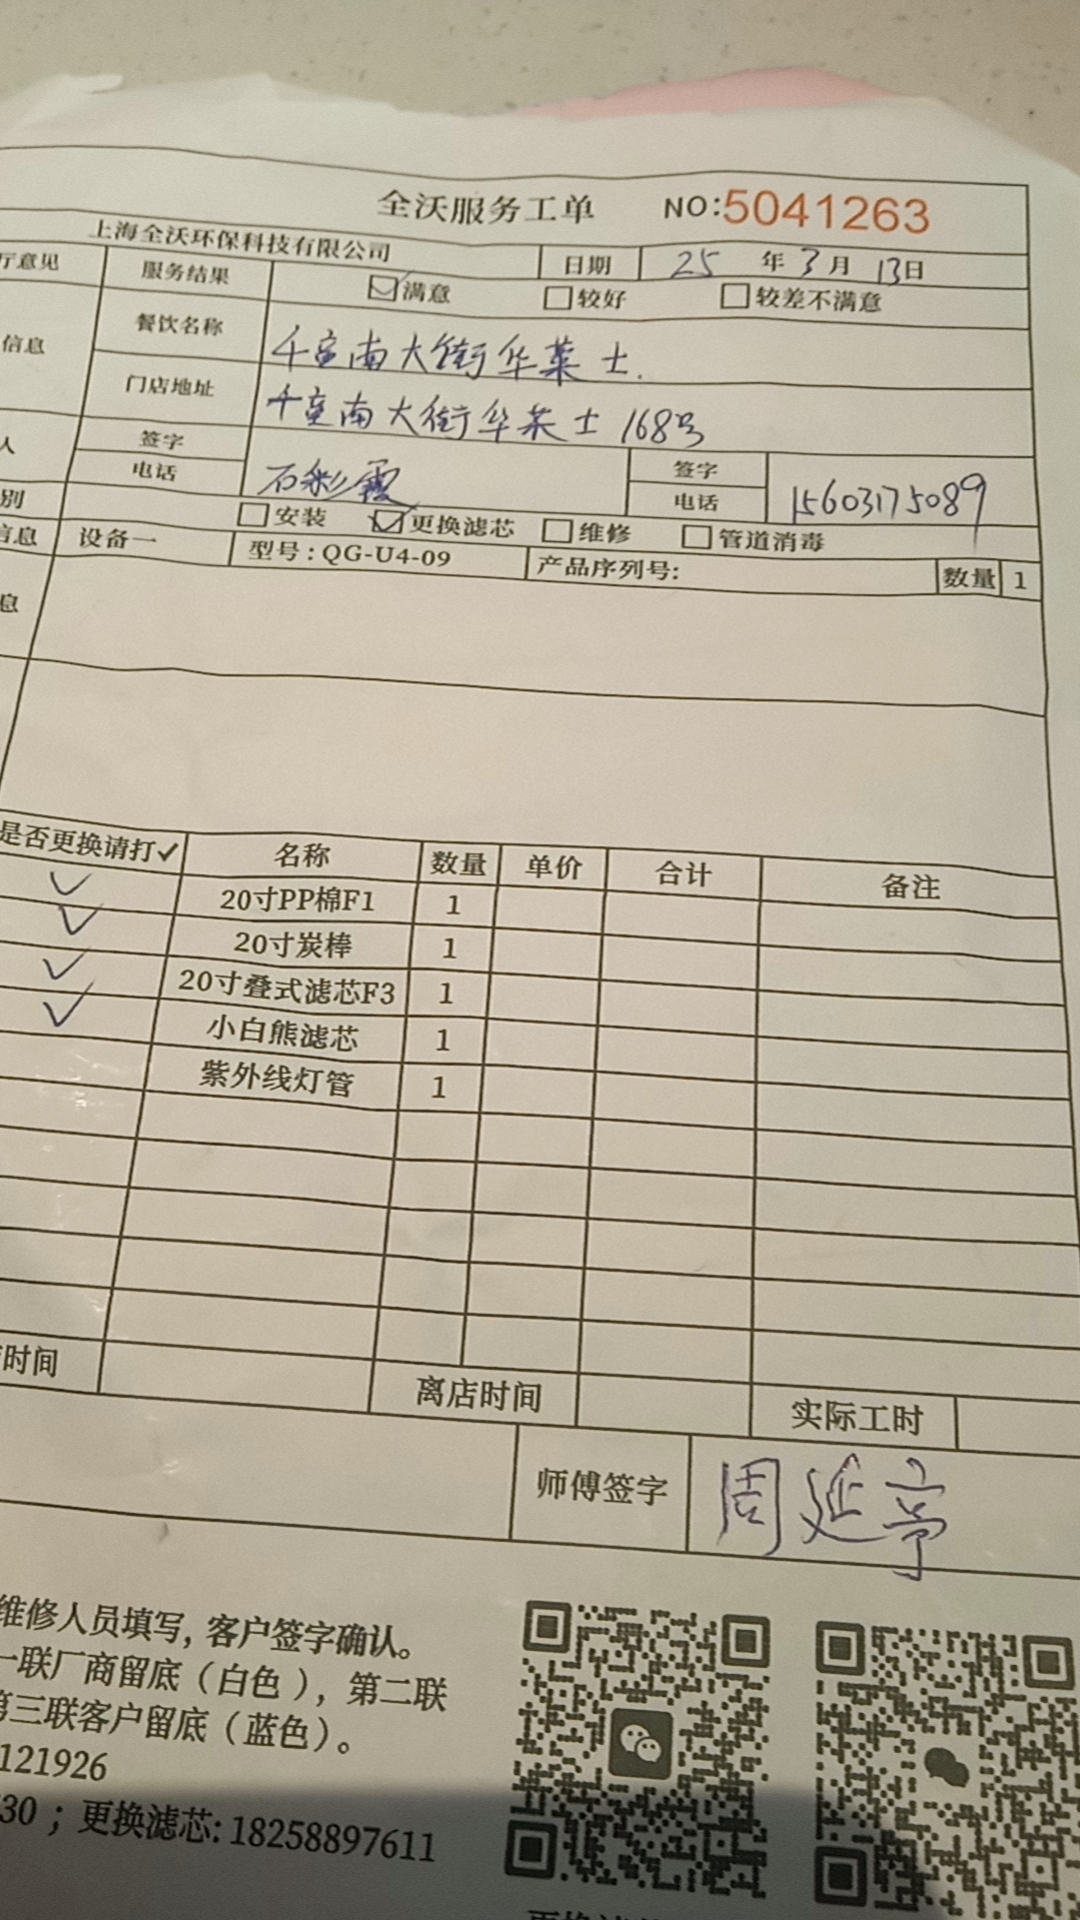 全沃服务工单 NO:5041263
上海全沃环保科技有限公司 日期 25 年 3 月 13 日
厅意见 服务结果 满意 较好 较差不满意
信息 餐饮名称 千童南大街华莱士.
门店地址 千童南大街华莱士168号
人 签字 石彩霞 签字
电话 电话 15603175089
别 安装 更换滤芯 维修 管道消毒
信息 设备一 型号:QG-U4-09 产品序列号: 数量 1
息
是否更换请打✓ 名称 数量 单价 合计 备注
✓ 20寸PP棉F1 1
✓ 20寸炭棒 1
✓ 20寸叠式滤芯F3 1
✓ 小白熊滤芯 1
紫外线灯管 1
时间 离店时间 实际工时
师傅签字 周延亭
维修人员填写, 客户签字确认。
一联厂商留底（白色）, 第二联
第三联客户留底（蓝色）。
121926
30 ; 更换滤芯: 18258897611